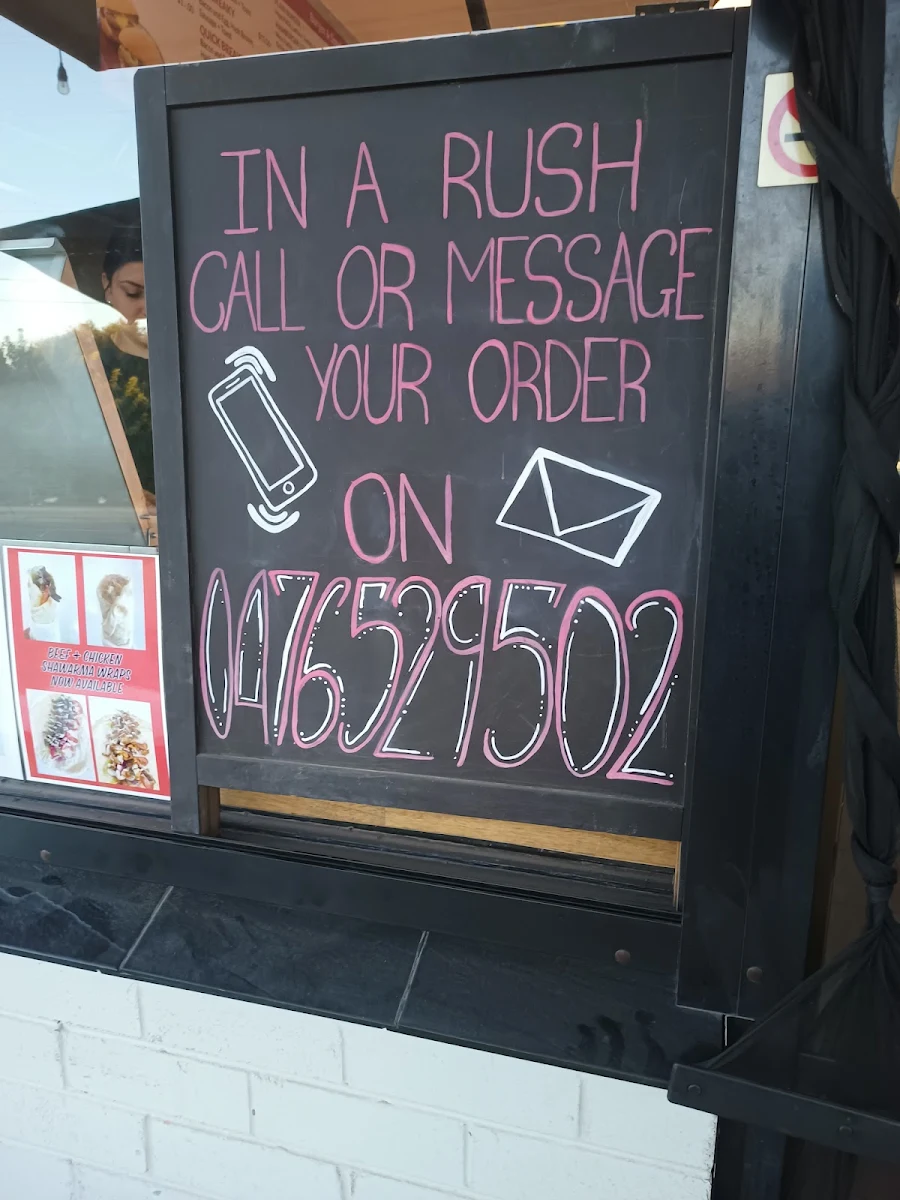 QUICK BREA
IN A RUSH
CALL OR MESSAGE
YOUR ORDER
ON
0476529502
BEEF + CHICKEN
SHAWARMA WRAPS
NOW AVAILABLE